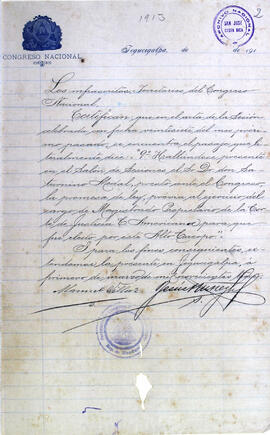 1913
2
ARCHIVO NACIONAL
SAN JOSÉ
COSTA RICA
CONGRESO NACIONAL
Tegucigalpa, de de 191
Los infrascritos, Secretarios del Congreso
Nacional,
Certifican: que en el acta de la Sesión
celebrada con fecha veintisiete del mes próxi
mo pasado, se encuentra el pasaje que li
teralmente dice: "9º Hallándose presente
en el Salón de Sesiones el Sr. Dr. don Sa
turnino Medal, prestó ante el Congreso,
la promesa de ley, previa al ejercicio del
cargo de Magistrado Propietario de la Cor
te de Justicia C. Americana, para que
fue electo por este Alto Cuerpo".
Y para los fines consiguientes, ex
tendemos la presente en Tegucigalpa, á
primero de marzo de mil novecientos
Manuel
S.
5